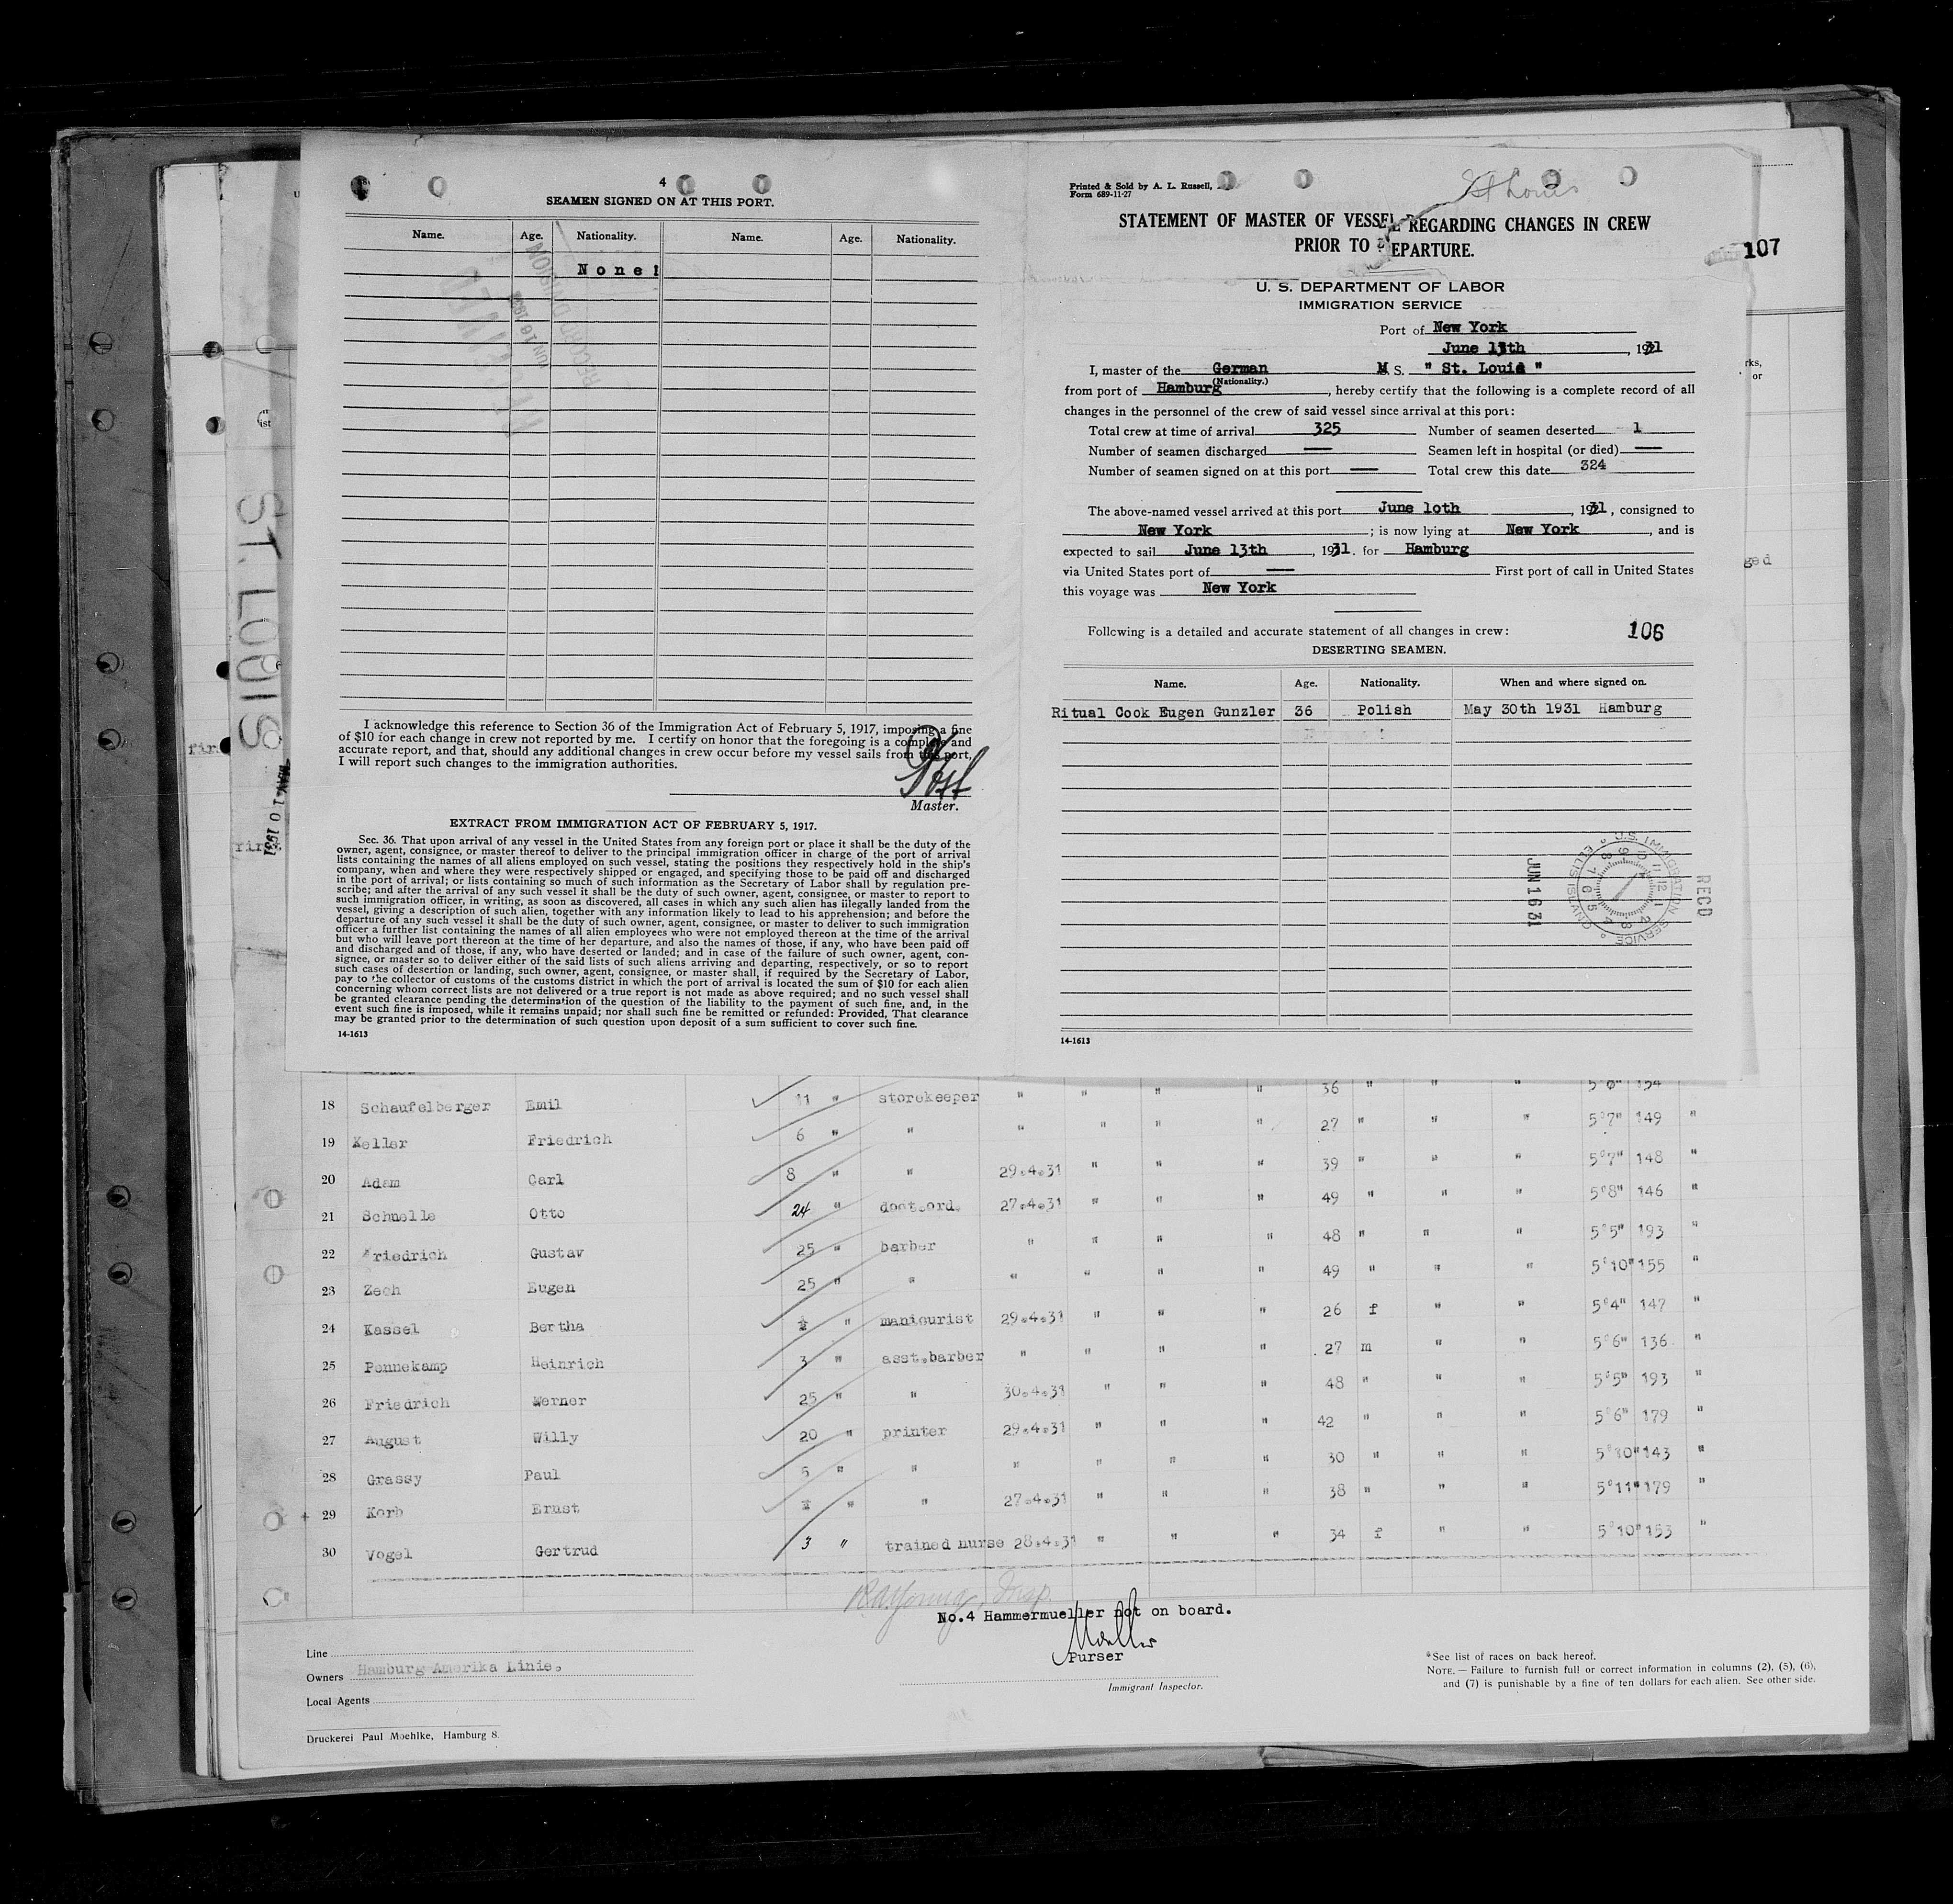 4
SEAMEN SIGNED ON AT THIS PORT.
Name. Age. Nationality. Name. Age. Nationality.
None!
I acknowledge this reference to Section 36 of the Immigration Act of February 5, 1917, imposing a fine
of $10 for each change in crew not reported by me. I certify on honor that the foregoing is a complete and
accurate report, and that, should any additional changes in crew occur before my vessel sails from this port,
I will report such changes to the immigration authorities.
Master.
EXTRACT FROM IMMIGRATION ACT OF FEBRUARY 5, 1917.
Sec. 36. That upon arrival of any vessel in the United States from any foreign port or place it shall be the duty of the
owner, agent, consignee, or master thereof to deliver to the principal immigration officer in charge of the port of arrival
lists containing the names of all aliens employed on such vessel, stating the positions they respectively hold in the ship's
company, when and where they were respectively shipped or engaged, and specifying those to be paid off and discharged
in the port of arrival; or lists containing so much of such information as the Secretary of Labor shall by regulation pre-
scribe; and after the arrival of any such vessel it shall be the duty of such owner, agent, consignee, or master to report to
such immigration officer, in writing, as soon as discovered, all cases in which any such alien has illegally landed from the
vessel, giving a description of such alien, together with any information likely to lead to his apprehension; and before the
departure of any such vessel it shall be the duty of such owner, agent, consignee, or master to deliver to such immigration
officer a further list containing the names of all alien employees who were not employed thereon at the time of the arrival
but who will leave port thereon at the time of her departure, and also the names of those, if any, who have been paid off
and discharged and of those, if any, who have deserted or landed; and in case of the failure of such owner, agent, con-
signee, or master so to deliver either of the said lists of such aliens arriving and departing, respectively, or so to report
such cases of desertion or landing, such owner, agent, consignee, or master shall, if required by the Secretary of Labor,
pay to the collector of customs of the customs district in which the port of arrival is located the sum of $10 for each alien
concerning whom correct lists are not delivered or a true report is not made as above required; and no such vessel shall
be granted clearance pending the determination of the question of the liability to the payment of such fine, and, in the
event such fine is imposed, while it remains unpaid; nor shall such fine be remitted or refunded: Provided, That clearance
may be granted prior to the determination of such question upon deposit of a sum sufficient to cover such fine.
14-1613
Printed & Sold by A. L. Russell,
Form 689-11-27
St Louis
STATEMENT OF MASTER OF VESSEL REGARDING CHANGES IN CREW
PRIOR TO DEPARTURE.
107
U. S. DEPARTMENT OF LABOR
IMMIGRATION SERVICE
Port of New York
June 13th, 1931
I, master of the German M.S. " St. Louis "
(Nationality.)
from port of Hamburg, hereby certify that the following is a complete record of all
changes in the personnel of the crew of said vessel since arrival at this port:
Total crew at time of arrival 325 Number of seamen deserted 1
Number of seamen discharged — Seamen left in hospital (or died) —
Number of seamen signed on at this port — Total crew this date 324
The above-named vessel arrived at this port June 1oth, 1931, consigned to
New York; is now lying at New York, and is
expected to sail June 13th, 1931. for Hamburg
via United States port of — First port of call in United States
this voyage was New York
Following is a detailed and accurate statement of all changes in crew: 106
DESERTING SEAMEN.
Name. Age. Nationality. When and where signed on.
Ritual Cook Eugen Gunzler 36 Polish May 30th 1931 Hamburg
RECD
U.S. IMMIGRATION SERVICE ELLIS ISLAND
JUN 16 31
14-1613
ST. LOUIS
MAY 10 1931
18 Schaufelberger Emil 11 " storekeeper " " " " 36 " " " 5'6" 154
19 Keller Friedrich 6 " " " " " " 27 " " " 5'7" 149 "
20 Adam Carl 8 " " 29.4.31 " " " 39 " " " 5'7" 148 "
21 Schnelle Otto 24 " doctord. 27.4.31 " " " 49 " " " 5'8" 146 "
22 Friedrich Gustav 25 " barber " " " " 48 " " " 5'5" 193 "
23 Zech Eugen 25 " " " " " " 49 " " " 5'10" 155 "
24 Kassel Bertha " manicurist 29.4.31 " " " 26 f " " 5'4" 147 "
25 Pennekamp Heinrich 3 " asst.barber " " " " 27 m " " 5'6" 136 "
26 Friedrich Werner 25 " " 30.4.31 " " " 48 " " " 5'5" 193 "
27 August Willy 20 " printer 29.4.31 " " " 42 " " " 5'6" 179 "
28 Grassy Paul 5 " " " " " " 30 " " " 5'10" 143 "
29 Korb Ernst " " 27.4.31 " " " 38 " " " 5'11" 179 "
30 Vogel Gertrud 3 " trained nurse 28.4.31 " " " 34 f " " 5'10" 153 "
No.4 Hammermueller not on board.
Moeller
Purser
Line
Owners Hamburg-Amerika Linie.
Local Agents
Immigrant Inspector.
*See list of races on back hereof.
NOTE.— Failure to furnish full or correct information in columns (2), (5), (6),
and (7) is punishable by a fine of ten dollars for each alien. See other side.
Druckerei Paul Moehlke, Hamburg 8.